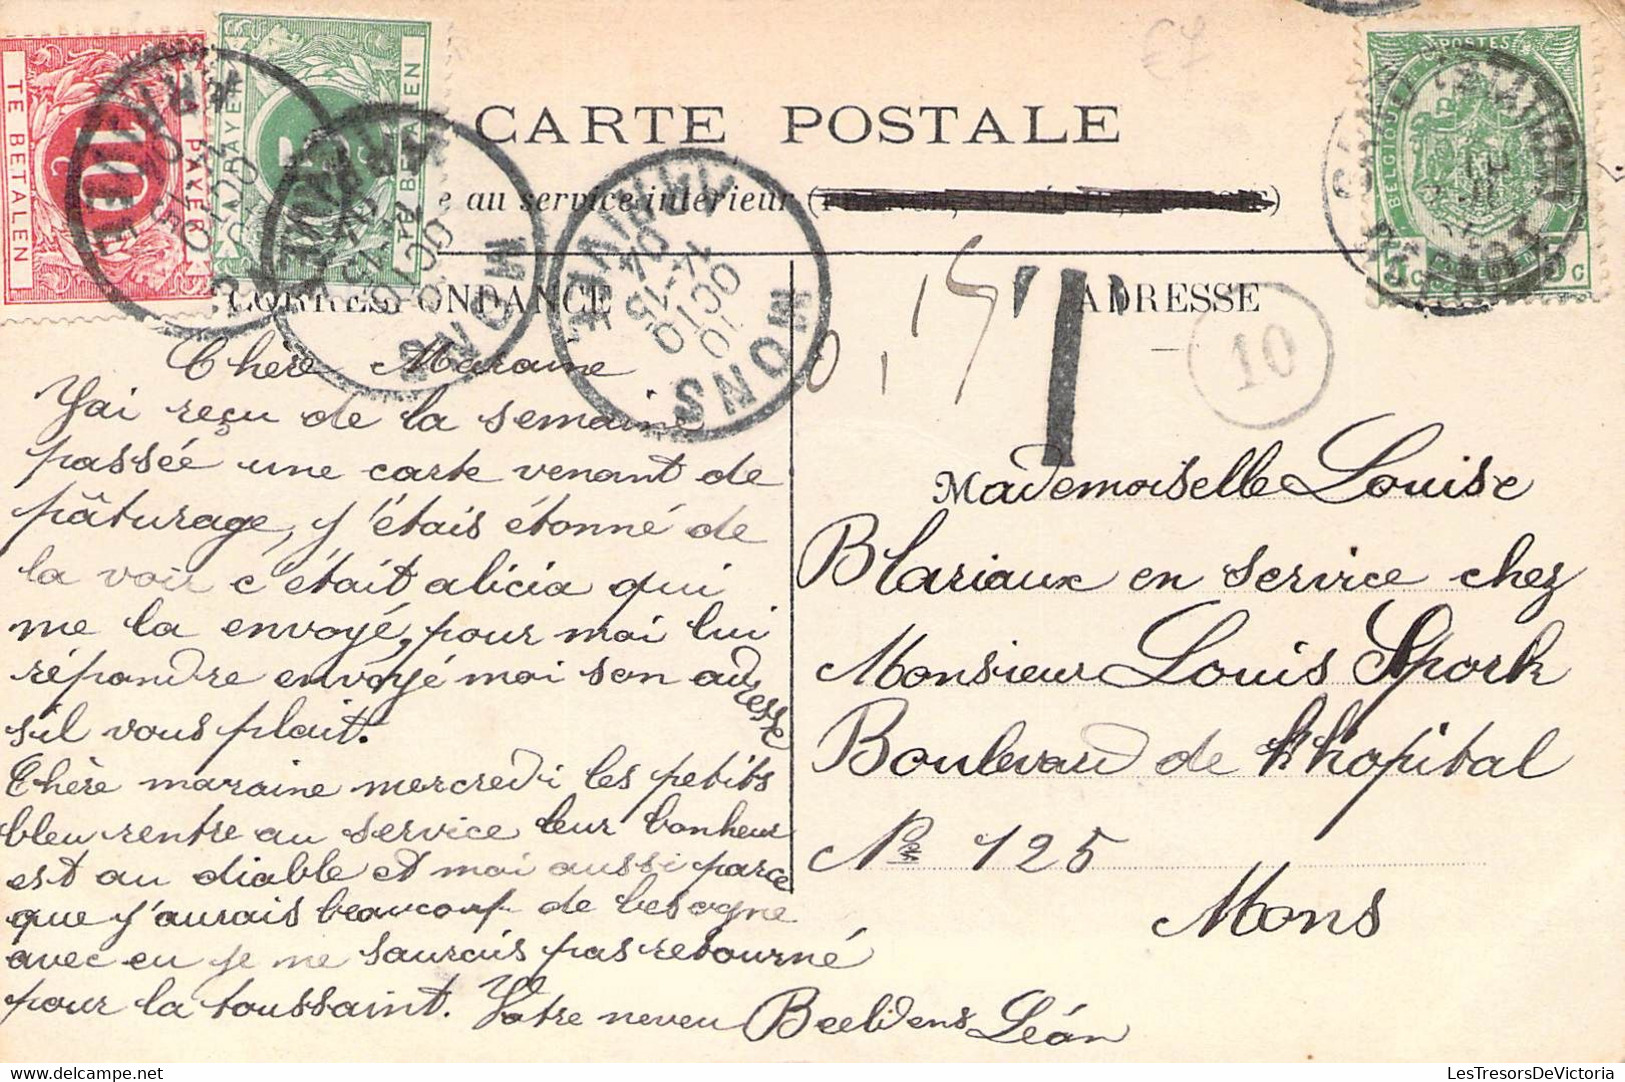 CARTE POSTALE
e au service intérieur
CORRESPONDANCE
ADRESSE
À PAYER
10
TE BETALEN
À PAYER
5
TE BETALEN
BELGIQUE
POSTES
MONS
ARRIVÉE
10
OCT
14-15
04
MONS
ARRIVÉE
10
OCT
14-15
04
MONS
10
OCT
14-15
04
(STATION)
0,15
T
10
Chère Maraine
J'ai reçu de la semaine
passée une carte venant de
pâturage, j'étais étonné de
la voir c'était alicia qui
me la envoyé, pour moi lui
répondre envoyé moi son adresse
s'il vous plait.
Chère maraine mercredi les petits
bleu rentre au service leur bonheur
est au diable et moi aussi parce
que j'aurais beaucoup de besogne
avec eu je ne saurais pas retourné
pour la toussaint. Votre neveu Beeldens Léon
Mademoiselle Louise
Blariaux en service chez
Monsieur Louis Spork
Boulevard de l'hopital
No 125
Mons
www.delcampe.net
LesTresorsDeVictoria